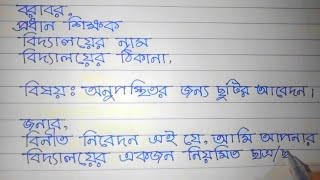 বরাবর,
প্রধান শিক্ষক
বিদ্যালয়ের নাম
বিদ্যালয়ের ঠিকানা,
বিষয়ঃ অনুপস্থিতির জন্য ছুটির আবেদন।
জনাব,
বিনীত নিবেদন এই যে, আমি আপনার
বিদ্যালয়ের একজন নিয়মিত ছাত্র/ছ